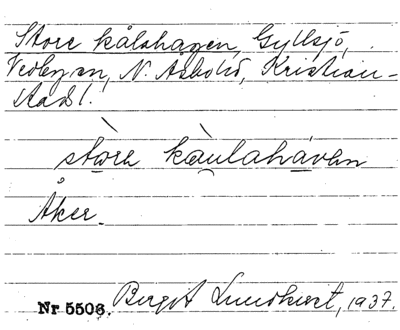 Store kålahagen, Gyllsjö,
Vedby sn, N. Åsbo hd, Kristian-
stads l.
stòre kàulahávën
Åker.
Nr 5503. Birgit Lundkvist, 1937.